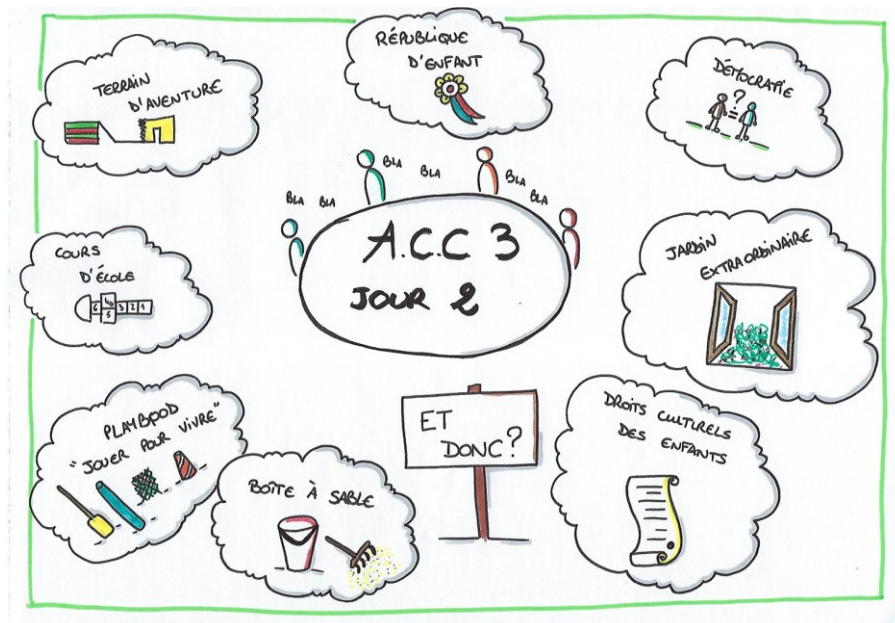 RÉPUBLIQUE
D'ENFANT
TERRAIN
D'AVENTURE
DÉMOCRATIE
?
=
BLA
BLA
BLA
BLA
BLA
BLA
A.C.C 3
JOUR 2
COURS
D'ÉCOLE
6 4 3 2 1
5
JARDIN
EXTRAORDINAIRE
PLAYBPOD
"JOUER POUR VIVRE"
BOÎTE À SABLE
ET
DONC?
DROITS CULTURELS
DES ENFANTS